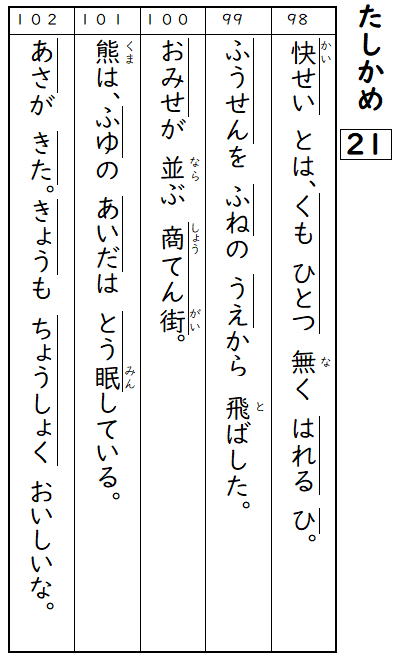 たしかめ
21
98
快せい とは、くも ひとつ 無く はれる ひ。
かい
な
99
ふうせんを ふねの うえから 飛ばした。
と
100
おみせが 並ぶ 商てん街。
なら
しょう
がい
101
熊は、ふゆの あいだは とう眠している。
くま
みん
102
あさが きた。きょうも ちょうしょく おいしいな。